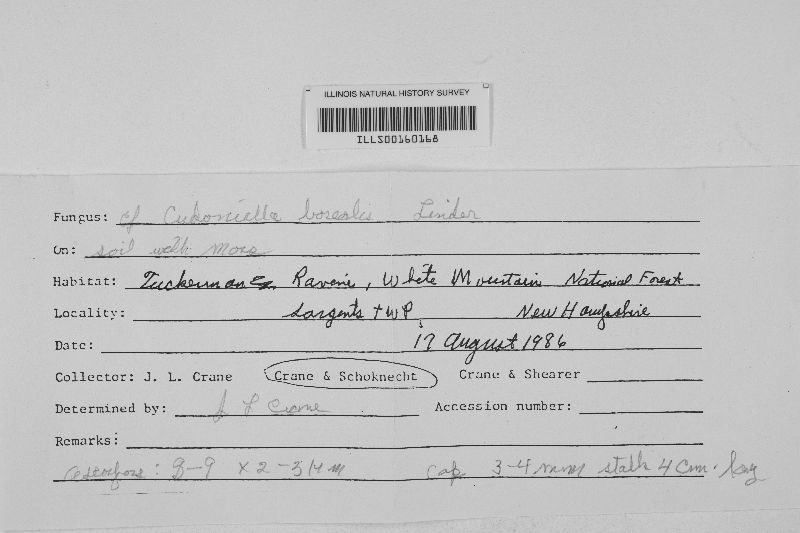 ILLINOIS NATURAL HISTORY SURVEY
ILLS00160168
Fungus: cf Cudoniella borealis Linder
On: soil with moss
Habitat: Tuckermans Ravine, White Mountain National Forest
Locality: Sargents twp, New Hampshire
Date: 17 August 1986
Collector: J. L. Crane Crane & Schoknecht Crane & Shearer
Determined by: J L Crane Accession number:
Remarks:
ascospore: 8-9 x 2-3 µm cap 3-4 mm stalk 4 cm. long